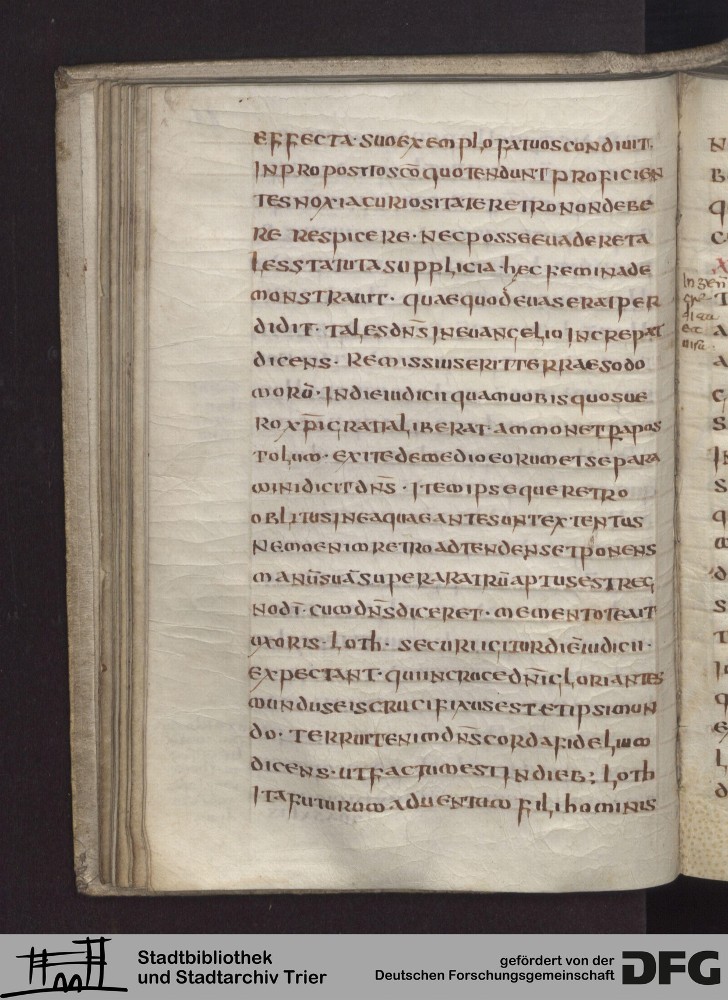 EFFECTA · SUOEXEMPLOFATUOSCONDIUIT.
INPROPOSITOSCŌQUOTENDUNTPROFICIEN
TESNOXIACURIOSITATERETRONONDEBE
RE RESPICERE · NECPOSSEEUADERETA
LESSTATUTASUPPLICIA · HECFEMINADE
MONSTRAUIT · QUAEQUODEUASERATPER
DIDIT · TALESDN̄SINEUANGELIOINCREPAT
DICENS · REMISSIUSERITTERRAESODO
MORŪ · INDIEIUDICIIQUAMUOBISQUOSUE
ROXP̄IGRATIALIBERAT · AMMONETETAPOS
TOLUM · EXITEDEMEDIOEORUMETSEPARA
MINIDICITDN̄S · ITEMIPSEQUERETRO
OBLITUSINEAQUAEANTESUNTEXTENTUS
NEMOENIMRETROADTENDENSETPONENS
MANŪSUĀSUPERARATRŪAPTUSESTREG
NODĪ · CUMDN̄SDICERET · MEMENTOTEAIT
UXORIS · LOTH · SECURIIGITURDIĒIUDICII ·
EXPECTANT · QUIINCRUCEDN̄IGLORIANTES
MUNDUSEISCRUCIFIXUSESTETIPSIMUN
DO · TERRUITENIMDN̄SCORDAFIDELIUM
DICENS · UTFACTUMESTINDIEB: LOTH
ITAFUTURUMADUENTUMFILIHOMINIS
Stadtbibliothek
und Stadtarchiv Trier
gefördert von der
Deutschen Forschungsgemeinschaft
DFG